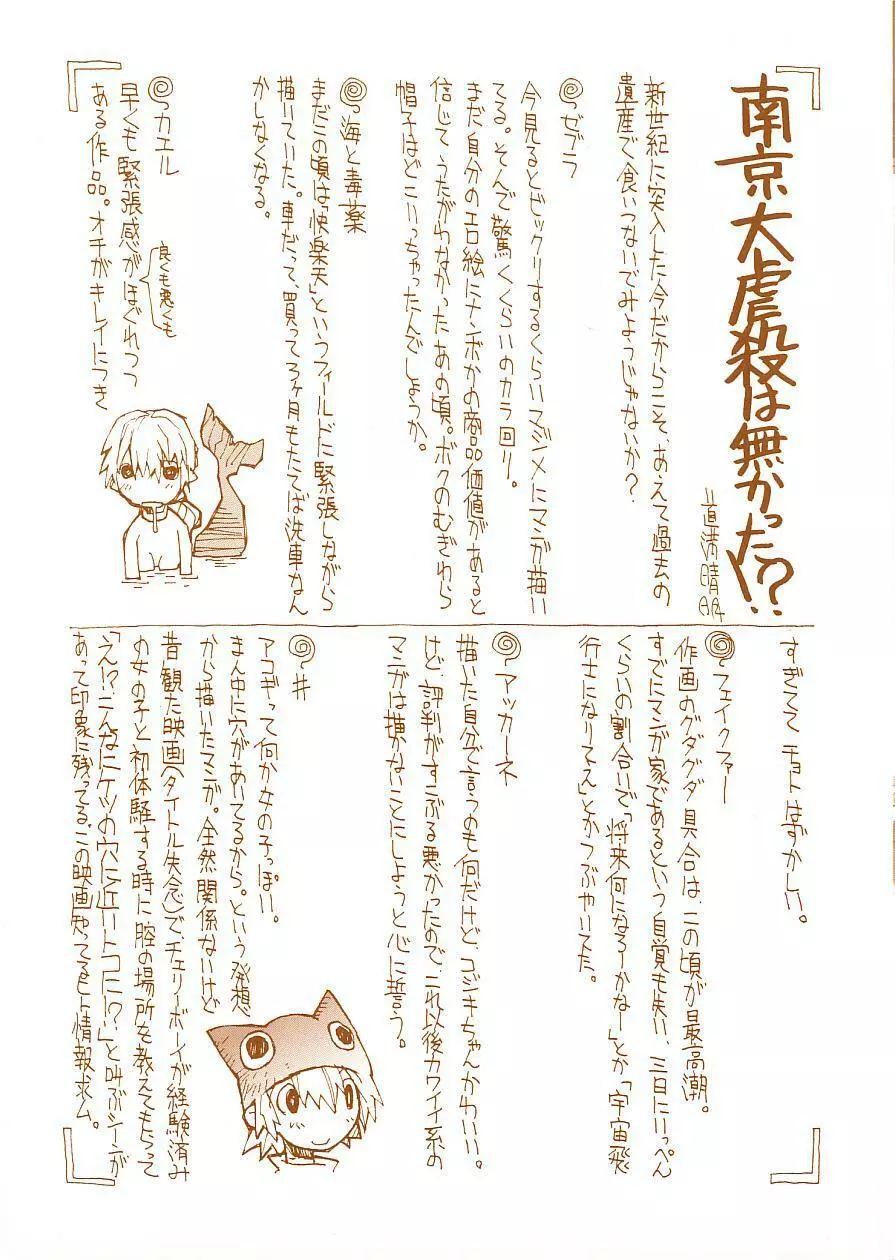 南京大虐殺は無かった!?
道満晴明
新世紀に突入した今だからこそ、あえて過去の
遺産で食いつないでみようじゃないか？
ゼブラ
今見るとビックリするくらいマジメにマンガ描い
てる。そんで驚くくらいのカラ回り。
まだ自分のエロ絵にナンボかの商品価値があると
信じてうたがわなかったあの頃。ボクのむぎわら
帽子はどこいっちゃったんでしょうか。
海と毒薬
まだこの頃は「快楽天」というフィールドに緊張しながら
描いていた。車だって、買って3ヶ月もたてば洗車なん
かしなくなる。
カエル
早くも緊張感がほぐれつつ
良くも悪くも
ある作品。オチがキレイにつき
すぎてて チョトはずかしい。
フェイクファー
作画のグダグダ具合は、この頃が最高潮。
すでにマンガ家であるという自覚も失い、三日にいっぺん
くらいの割合いで「将来何になろーかなー」とか「宇宙飛
行士になりてえ」とかつぶやいてた。
アッカーネ
描いた自分で言うのも何だけど、コジキちゃんかわいい。
けど、評判がすこぶる悪かったので、これ以後カワイイ系の
マンガは描かないことにしようと心に誓う。
#
アコギって何か女の子っぽい。
まん中に穴があいてるから。という発想
から描いたマンガ。全然関係ないけど
昔観た映画(タイトル失念)で、チェリーボーイが経験済み
の女の子と初体験する時に腟の場所を教えてもらって
「え!?こんなにケツの穴に近いトコに!?」と叫ぶシーンが
あって印象に残ってる。この映画知ってるヒト情報求ム。